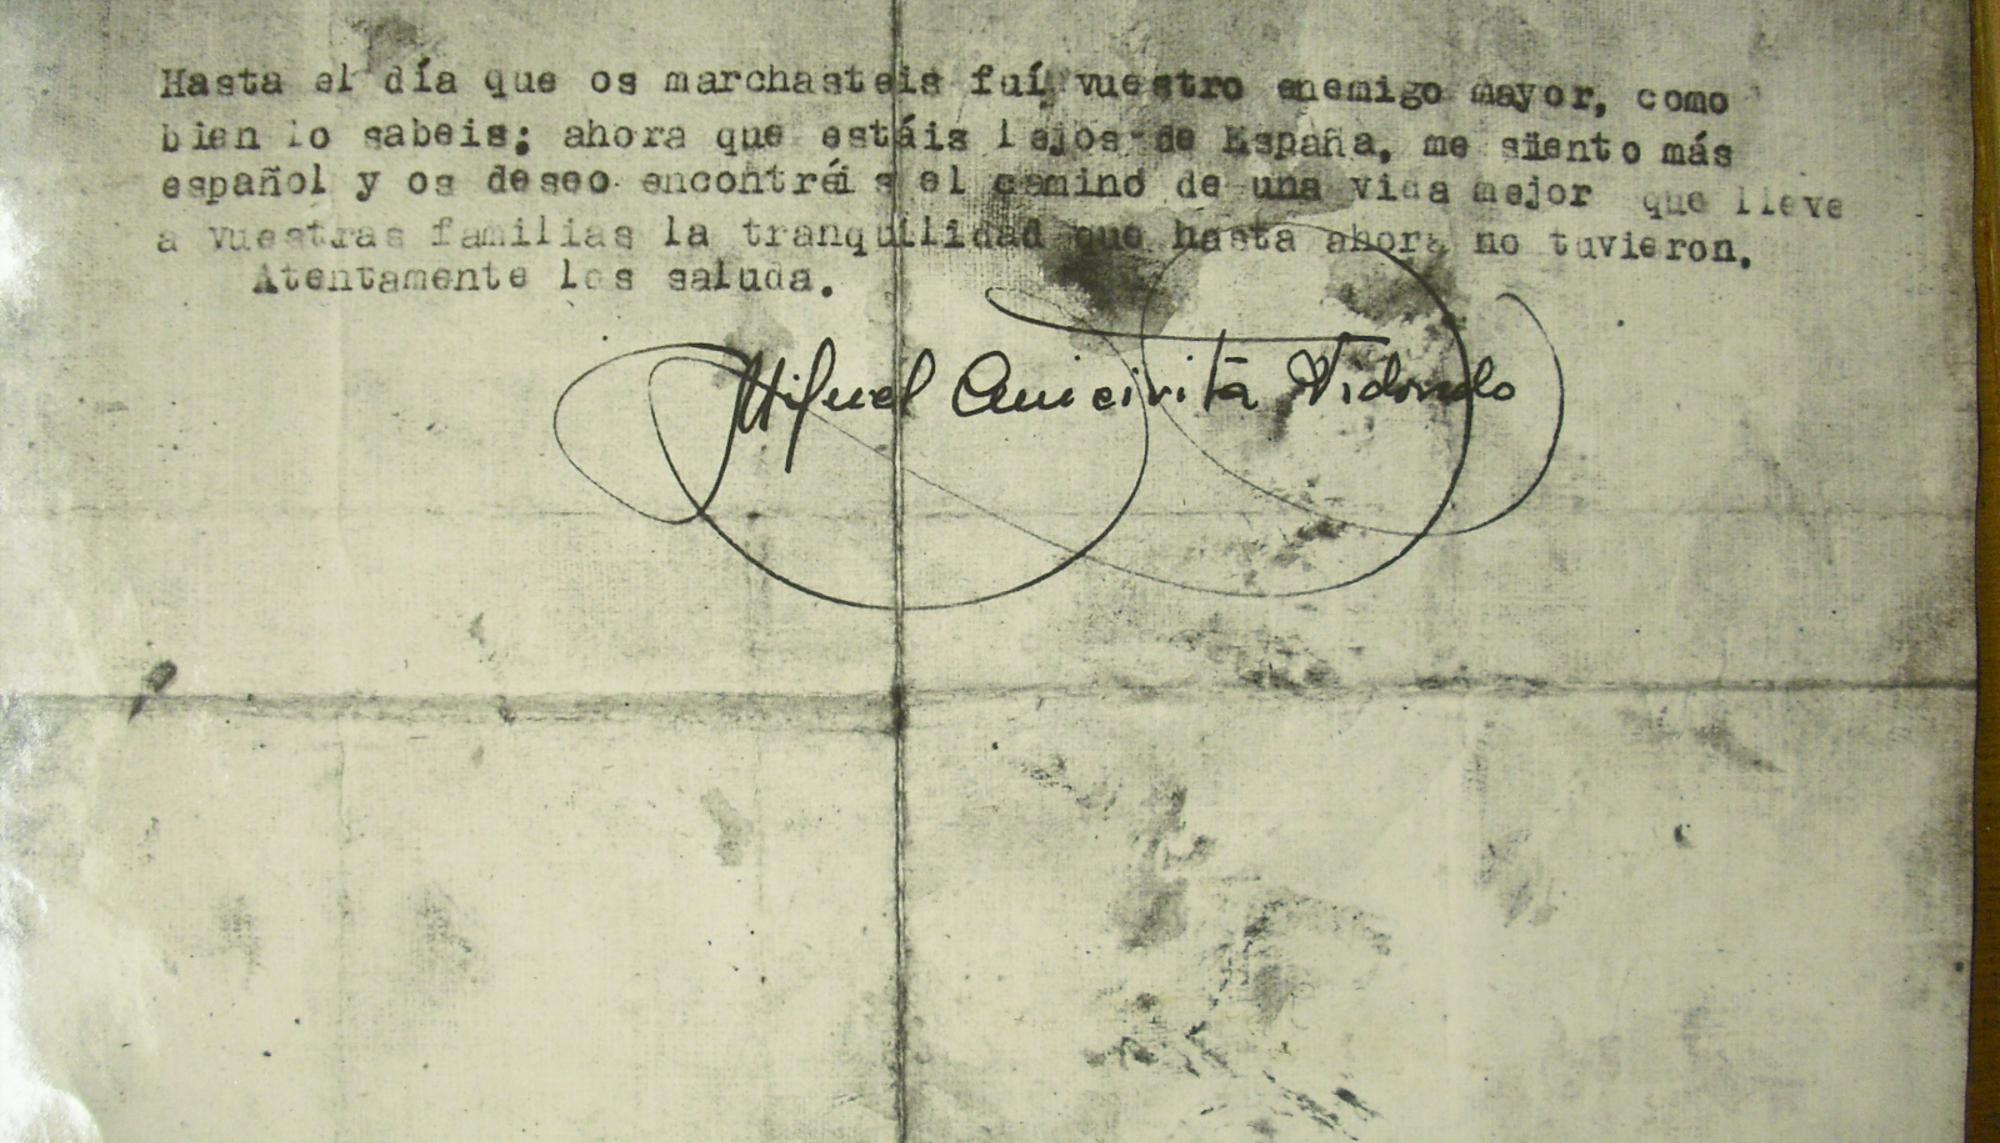 Hasta el día que os marchasteis fuí vuestro enemigo mayor, como
bien lo sabeis; ahora que estáis lejos de España, me siento más
español y os deseo encontréis el camino de una vida mejor que lleve
a vuestras familias la tranquilidad que hasta ahora no tuvieron.
Atentamente los saluda.
Miguel Vidondo